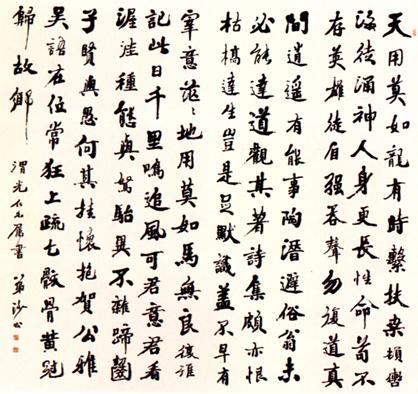 天用莫如龍有時繫扶桑頓轡
海徒涌神人身更長性命苟不
存英雄徒自强吞聲勿復道真
間逍遥有能事陶潛避俗翁未
必能達道觀其著詩集頗亦恨
枯槁達生豈是足默識蓋不早有
宰意茫茫地用莫如馬無良復誰
記此日千里鳴追風可君意君看
渥洼種態與駑駘異不雜蹄齧
子賢與愚何其挂懷抱賀公雅
吳語在位常狂上疏乞骸骨黃冠
歸故鄉